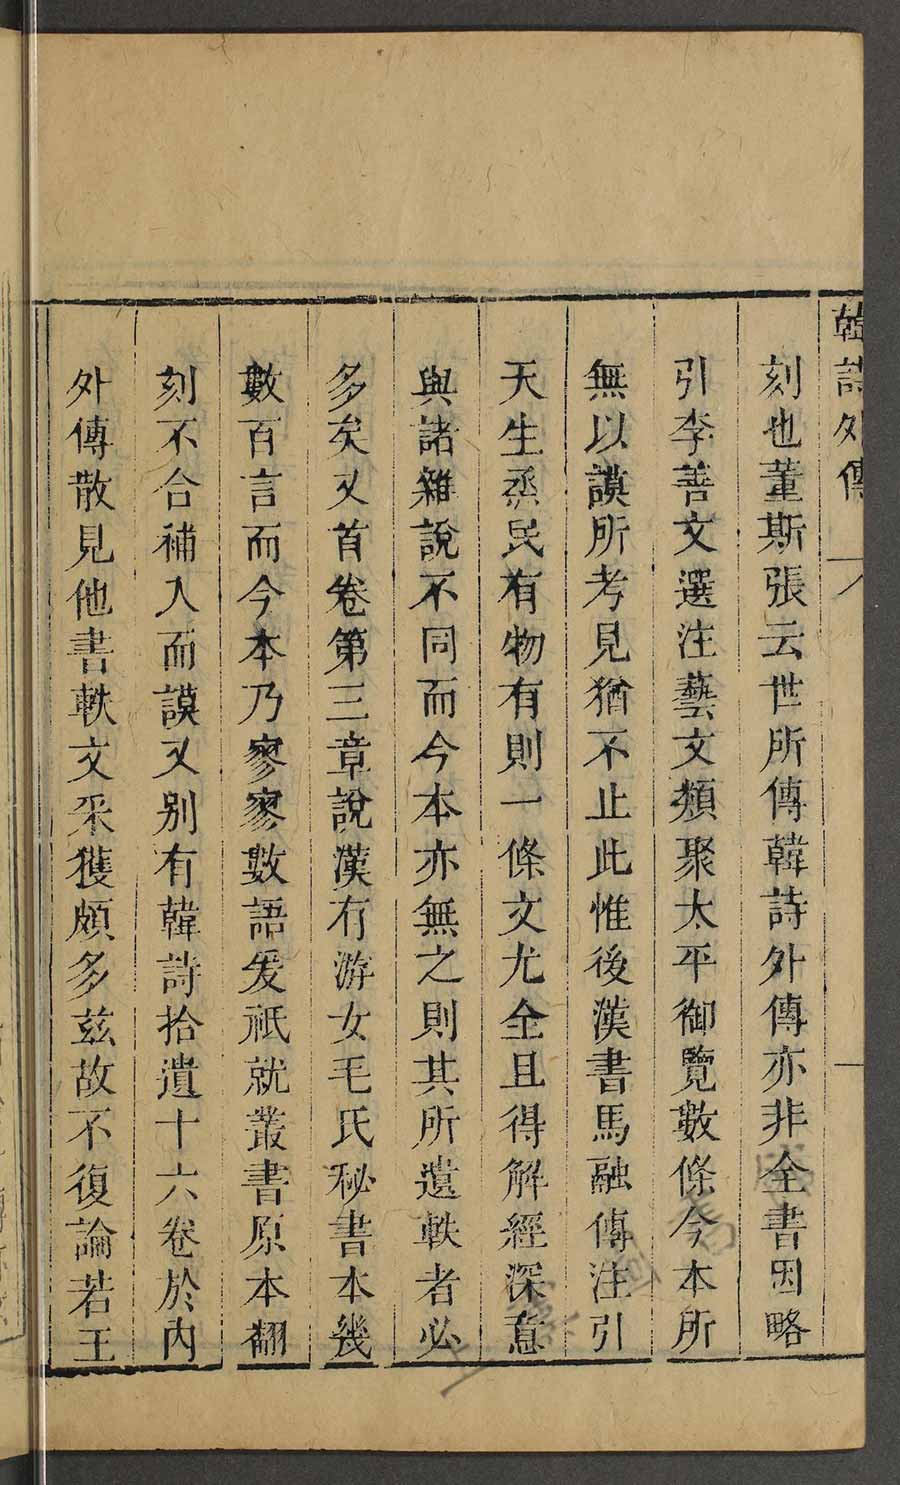 韓詩外傳 一
刻也董斯張云世所傳韓詩外傳亦非全書因略
引李善文選注藝文類聚太平御覽數條今本所
無以謨所考見猶不止此惟後漢書馬融傳注引
天生烝民有物有則一條文尤全且得解經深意
與諸雜說不同而今本亦無之則其所遺軼者必
多矣又首卷第三章說漢有游女毛氏秘書本幾
數百言而今本乃寥寥數語爰祇就叢書原本翻
刻不合補入而謨又別有韓詩拾遺十六卷於內
外傳散見他書軼文采獲頗多茲故不復論若王